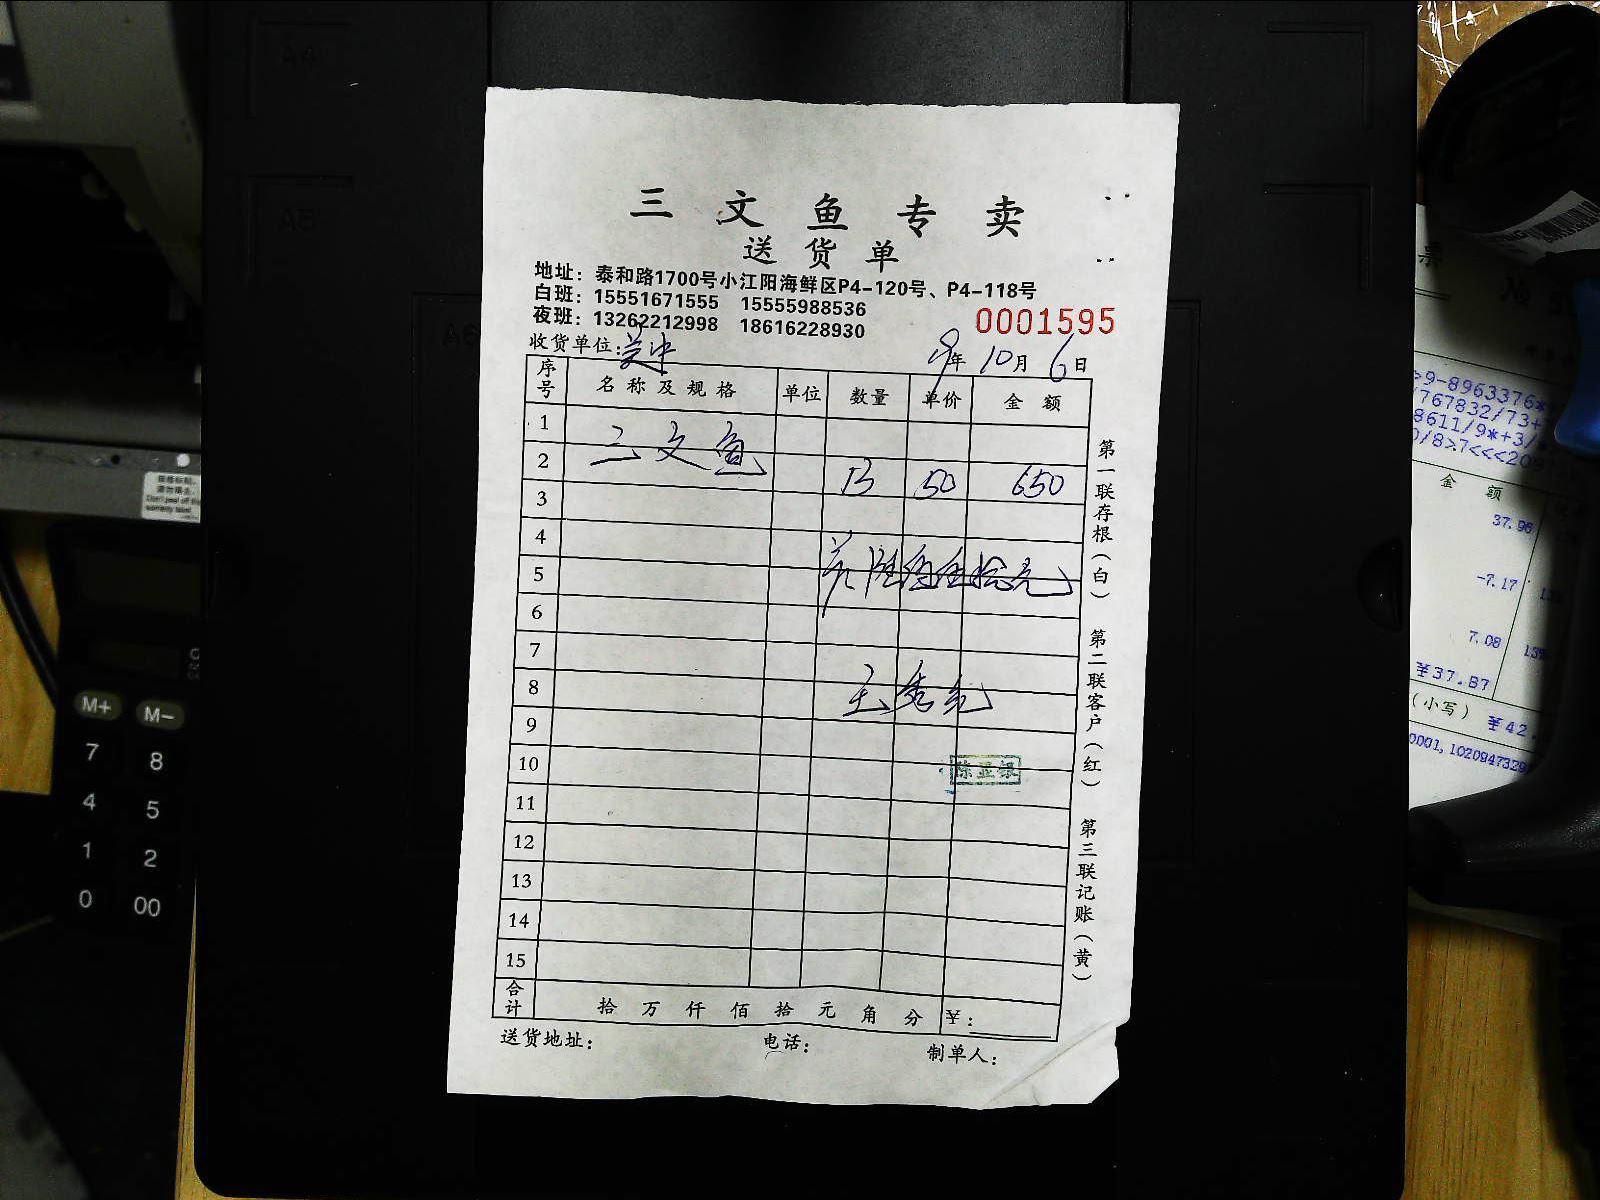 三文鱼专卖
送货单
地址：泰和路1700号小江阳海鲜区P4-120号、P4-118号
白班：15551671555 15555988536
夜班：13262212998 18616228930
0001595
收货单位：
19年10月6日
序号 名称及规格 单位 数量 单价 金额
1
2 三文鱼 13 50 650
3
4
5 陆佰伍拾元
6
7
8
9
10
11
12
13
14
15
合计 拾万仟佰拾元角分 ¥：
送货地址： 电话： 制单人：
第一联存根（白）
第二联客户（红）
第三联记账（黄）
M+ M-
7 8
4 5
1 2
0 00
金额
37.96
-7.17
7.08
¥37.87
（小写） ¥42.